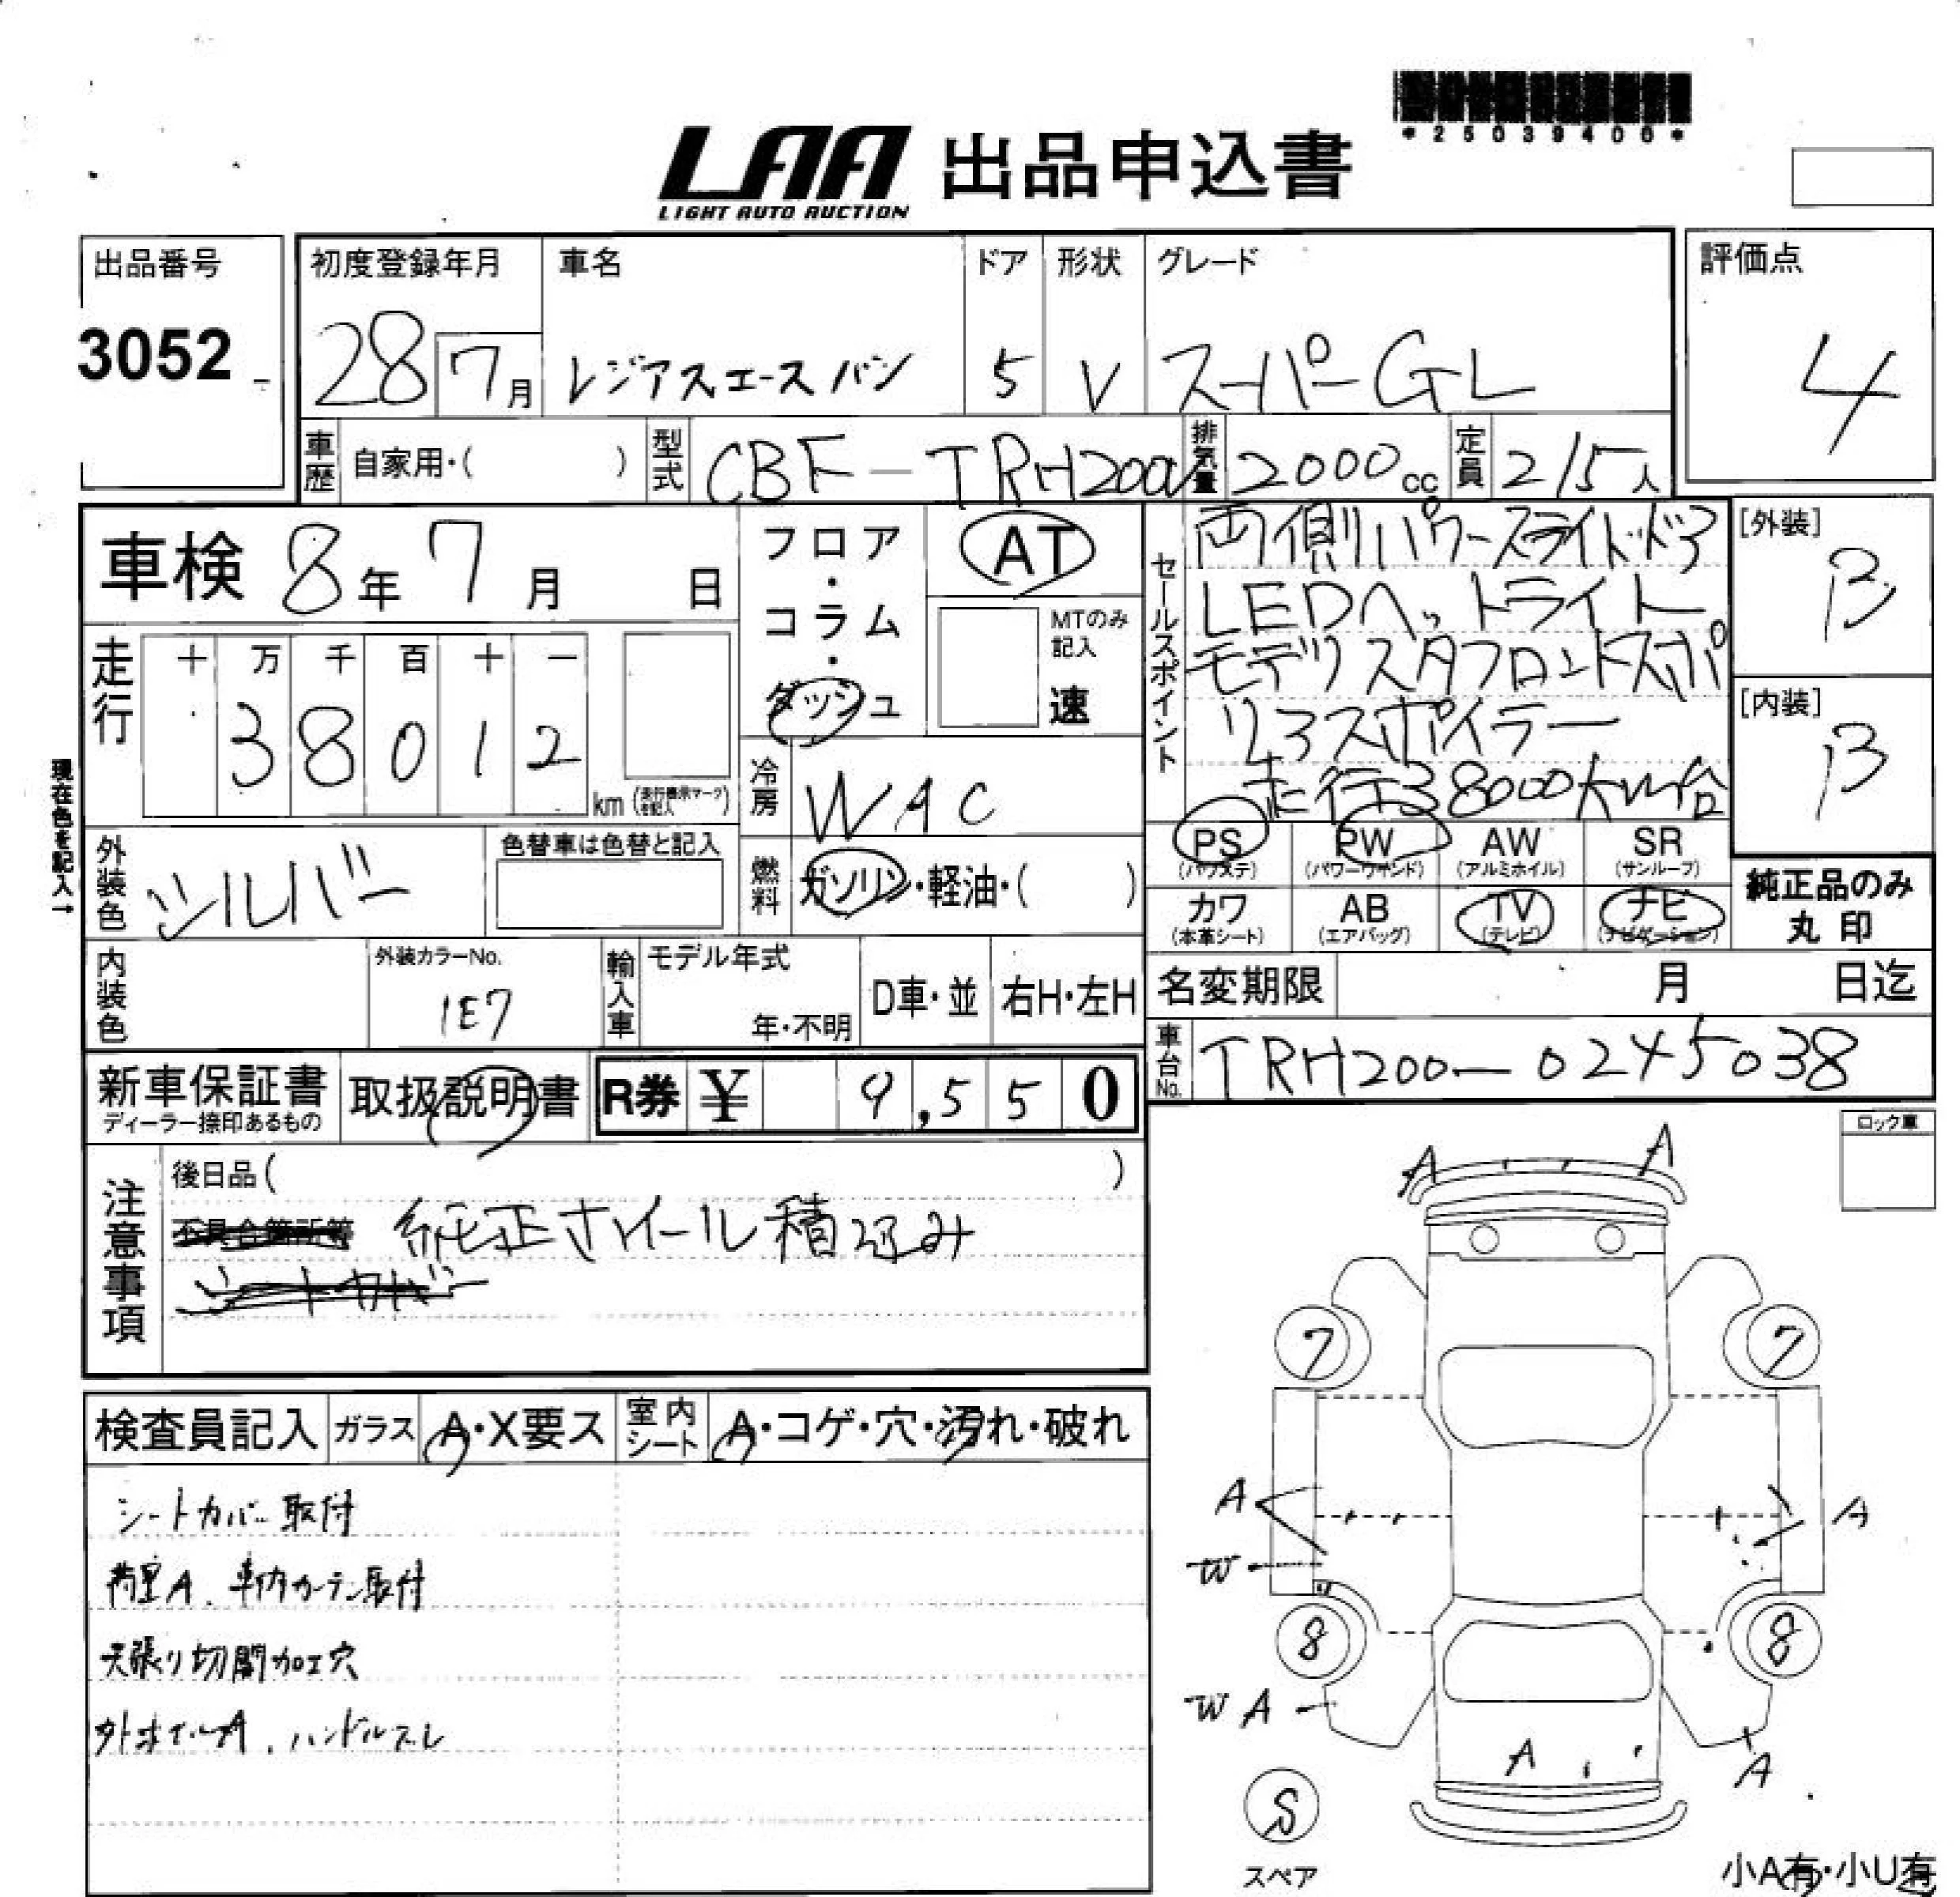 *25039400*
LAA 出品申込書
LIGHT AUTO AUCTION
出品番号
3052
初度登録年月
28 7月
車名
レジアスエースバン
ドア
5
形状
V
グレード
スーパーGL
評価点
4
車歴 自家用・( )
型式 CBF-TRH200V
排気量 2000cc
定員 2/5人
車検 8年 7月 日
フロア・コラム・ダッシュ
AT
MTのみ記入
速
セールスポイント
両側パワースライドドア
LEDヘッドライト
モデリスタフロントスポ
リアスポイラー
走行38000km台
[外装]
B
[内装]
B
走行
十 万 千 百 十 一
3 8 0 1 2
km (走行表示マークを記入)
現在色を記入→
冷房 WAC
外装色 シルバー
色替車は色替と記入
燃料 ガソリン・軽油・( )
PS (パワステ)
PW (パワーウィンド)
AW (アルミホイル)
SR (サンルーフ)
カワ (本革シート)
AB (エアバッグ)
TV (テレビ)
ナビ (ナビゲーション)
純正品のみ
丸印
内装色
外装カラーNo.
1E7
輸入車
モデル年式
年・不明
D車・並
右H・左H
名変期限 月 日迄
車台No. TRH200-0245038
新車保証書
ディーラー捺印あるもの
取扱説明書
R券 ¥ 9,550
ロック車
注意事項
後日品( )
不具合箇所等 純正ホイール積込み
シートカバー
検査員記入
ガラス A・X要ス
室内シート A・コゲ・穴・汚れ・破れ
シートカバー取付
荷室A、車内カーテン取付
天張り切開加工穴
外ホイールA、ハンドルスレ
A A
7 7
A A
W
8 8
W A
A A
S
スペア
小A有・小U有